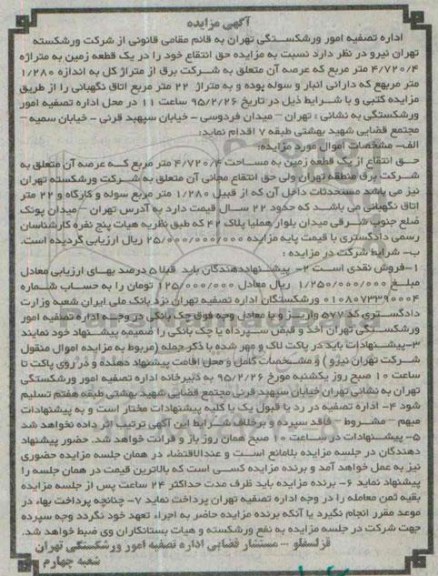 آگهی مزایده
اداره تصفیه امور ورشکستگی تهران به قائم مقامی قانونی از شرکت ورشکسته
تهران نیرو در نظر دارد نسبت به مزایده حق انتفاع خود را در یک قطعه زمین به متراژه
۴/۷۲۰/۴ متر مربع که عرصه آن متعلق به شرکت برق از متراژ کل به اندازه ۱/۲۸۰
متر مربعع که دارائی انبار و سوله بوده و به متراژ ۲۲ متر مربع اتاق نگهبانی را از طریق
مزایده کتبی و با شرایط ذیل در تاریخ ۹۵/۲/۲۶ ساعت ۱۱ در محل اداره تصفیه امور
ورشکستگی به نشانی : تهران – میدان فردوسی – خیابان سپهبد قرنی – خیابان سمیه –
مجتمع قضایی شهید بهشتی طبقه ۷ اقدام نماید:
الف– مشخصات اموال مورد مزایده:
حق انتفاع از یک قطعه زمین به مساحت ۴/۷۲۰/۴ متر مربع که عرصه آن متعلق به
شرکت برق منطقه تهران ولی حق انتفاع مجانی آن متعلق به شرکت ورشکسته تهران
نیز می باشد مستحدثات داخل آن که از قبیل ۱/۲۸۰ متر مربع سوله و کارگاه و ۲۲ متر
اتاق نگهبانی می باشد که حدود ۲۲ سال قیمت دارد به آدرس تهران – میدان پونک
ضلع جنوب شرقی میدان بلوار همیلا پلاک ۴۲ که طبق نظریه هیات پنج نفره کارشناسان
رسمی دادگستری با قیمت پایه مزایده ۲۵/۰۰۰/۰۰۰/۰۰۰ ریال ارزیابی گردیده است.
ب– شرایط شرکت در مزایده :
۱–فروش نقدی است ۲– پیشنهاددهندگان باید قبلا ۵ درصد بهای ارزیابی معادل
مبلغ ۱/۲۵۰/۰۰۰/۰۰۰ ریال معادل ۱۲۵/۰۰۰/۰۰۰ تومان را به حساب شماره
۰۱۰۸۰۷۳۳۹۰۰۰۴ ورشکستگان اداره تصفیه تهران نزد بانک ملی ایران شعبه وزارت
دادگستری کد ۵۷۷ واریز و یا معادل وجه فوق چک بانکی در وجه اداره تصفیه امور
ورشکستگی تهران اخذ و قبض سپرده یا چک بانکی را ضمیمه پیشنهاد خود نمایند
۳–پیشنهادات باید در پاکت لاک و مهر شده با ذکر جمله (مربوط به مزایده اموال منقول
شرکت تهران نیرو ) و مشخصات کامل و محل اقامت پیشنهاد دهنده و در روی پاکت تا
ساعت ۱۰ صبح روز یکشنبه مورخ ۹۵/۲/۲۶ به دبیرخانه اداره تصفیه امور ورشکستگی
تهران به نشانی تهران خیابان سپهبد قرنی مجتمع قضایی شهید بهشتی طبقه هفتم تسلیم
شود ۴– اداره تصفیه در رد یا قبول یک یا کلیه پیشنهادات مختار است و به پیشنهادات
مبهم – مشروط – فاقد سپرده و برخلاف شرایط این آگهی ترتیب اثر داده نخواهد شد
۵– پیشنهادات در ساعت ۱۰ صبح همان روز باز و قرائت خواهد شد. حضور پیشنهاد
دهندگان در جلسه مزایده بلامانع است و عندالاقتضاء در همان جلسه مزایده حضوری
نیز به عمل خواهد آمد و برنده مزایده کسی است که بالاترین قیمت در همان جلسه را
پیشنهاد نماید ۶– برنده مزایده باید ظرف مدت حداکثر ۲۴ ساعت پس از جلسه مزایده
بقیه ثمن معامله را در وجه اداره تصفیه تهران پرداخت نماید ۷– چنانچه پرداخت بهاء در
موعد مقرر انجام نگیرد یا آنکه برنده مزایده حاضر به اجراء تعهد خود نگردد وجه سپرده
جهت شرکت در جلسه مزایده به نفع ورشکسته و هیات بستانکاران وی ضبط خواهد شد.
قزلسفلو – مستشار قضایی اداره تصفیه امور ورشکستگی تهران
شعبه چهارم